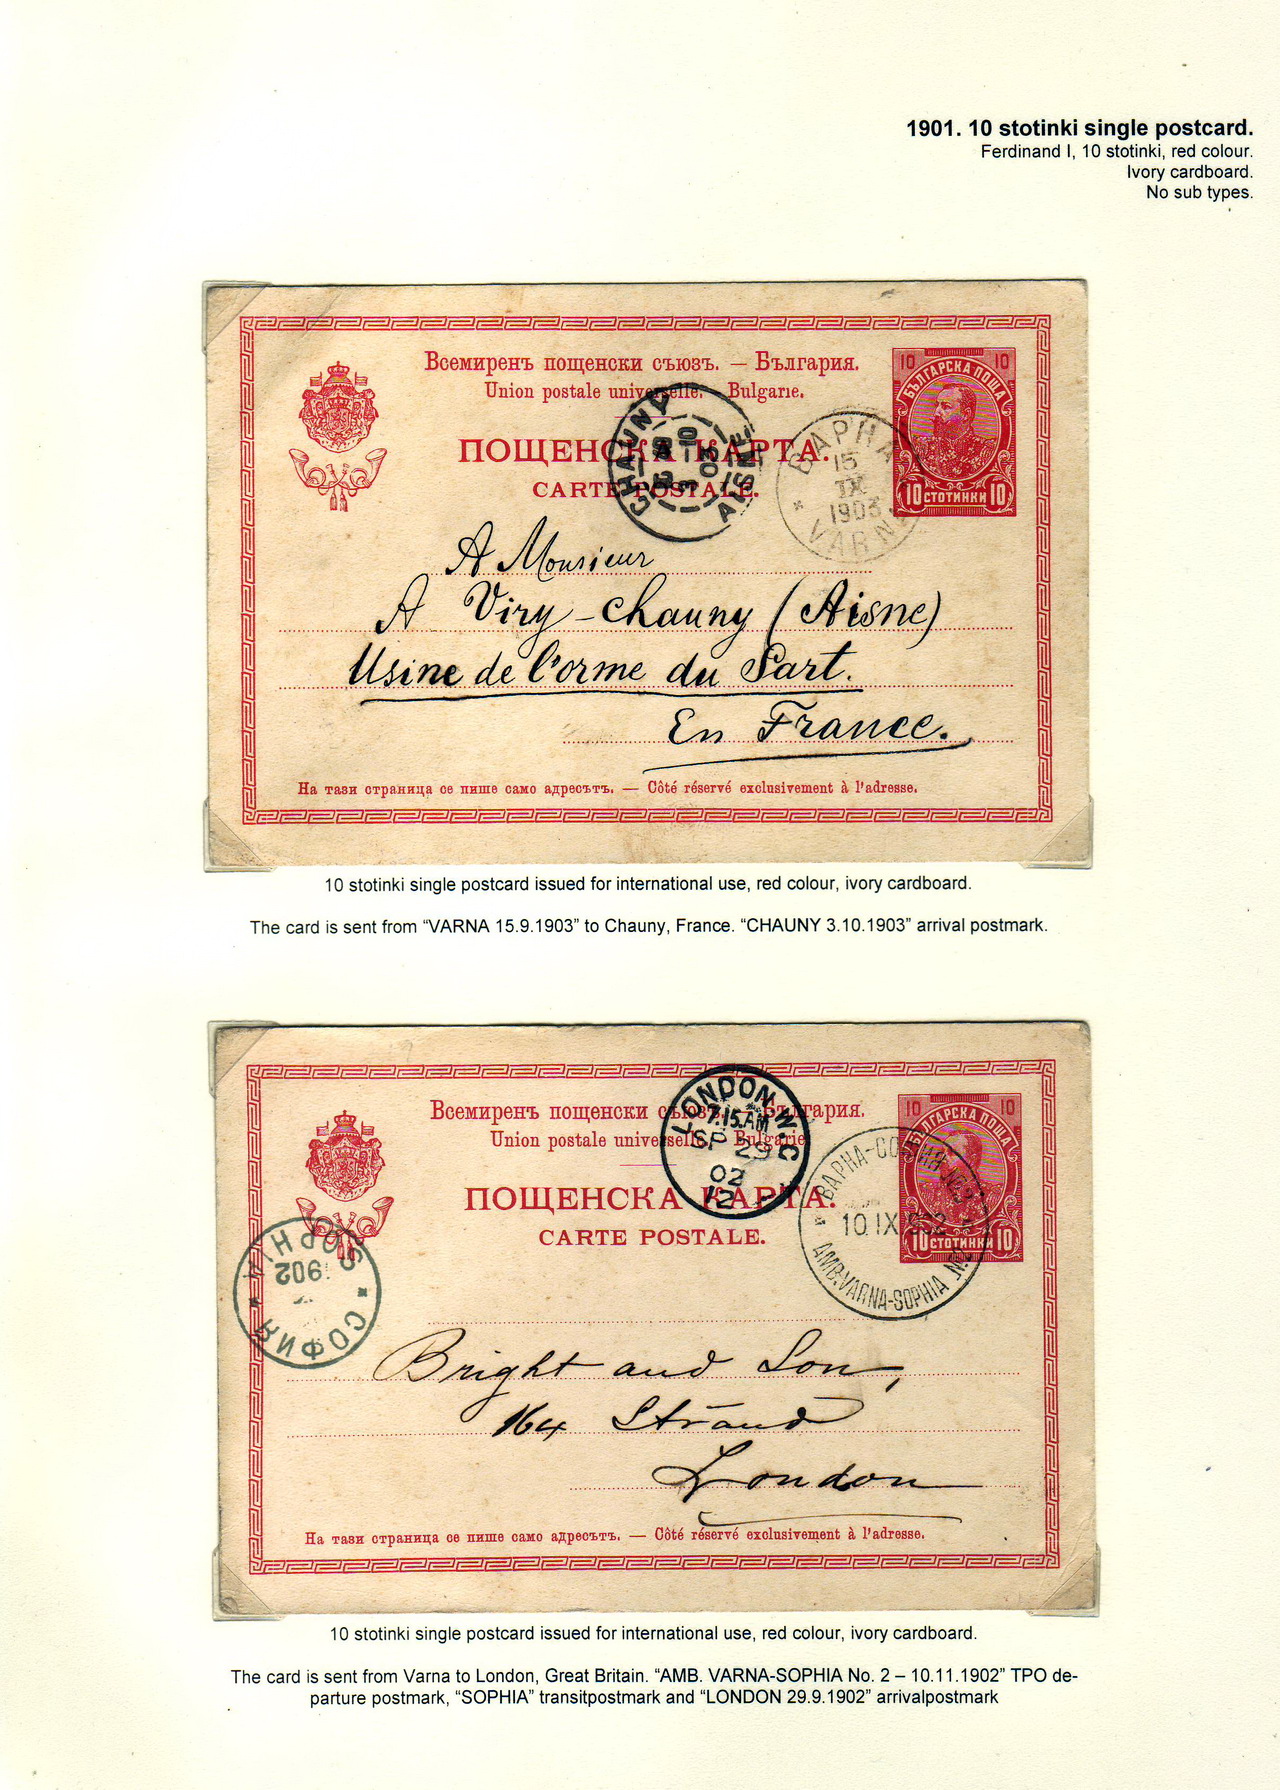 1901. 10 stotinki single postcard.
Ferdinand I, 10 stotinki, red colour.
Ivory cardboard.
No sub types.
Всемиренъ пощенски съюзъ. — България.
Union postale universelle. Bulgarie.
ПОЩЕНСКА КАРТА.
CARTE POSTALE.
10 10
БЪЛГАРСКА ПОЩА
10 СТОТИНКИ 10
CHAUNY
3 10
03
AISNE
ВАРНА
15
IX
1903
VARNA
A Monsieur
A Viry-Chauny (Aisne)
Usine de l'orme du Sart.
En France.
На тази страница се пише само адресътъ. — Côté réservé exclusivement à l'adresse.
10 stotinki single postcard issued for international use, red colour, ivory cardboard.
The card is sent from “VARNA 15.9.1903” to Chauny, France. “CHAUNY 3.10.1903” arrival postmark.
Всемиренъ пощенски съюзъ. — България.
Union postale universelle. — Bulgarie
ПОЩЕНСКА КАРТА.
CARTE POSTALE.
10 10
БЪЛГАРСКА ПОЩА
10 СТОТИНКИ 10
LONDON. W.C
7.15.AM
SP 29
02
12
ВАРНА-СОФИЯ
10.IX.902
AMB.VARNA-SOPHIA
SOPHIA
902
СОФИЯ
Bright and Son,
164 Strand
London
На тази страница се пише само адресътъ. — Côté réservé exclusivement à l'adresse.
10 stotinki single postcard issued for international use, red colour, ivory cardboard.
The card is sent from Varna to London, Great Britain. “AMB. VARNA-SOPHIA No. 2 – 10.11.1902” TPO de-
parture postmark, “SOPHIA” transitpostmark and “LONDON 29.9.1902” arrivalpostmark